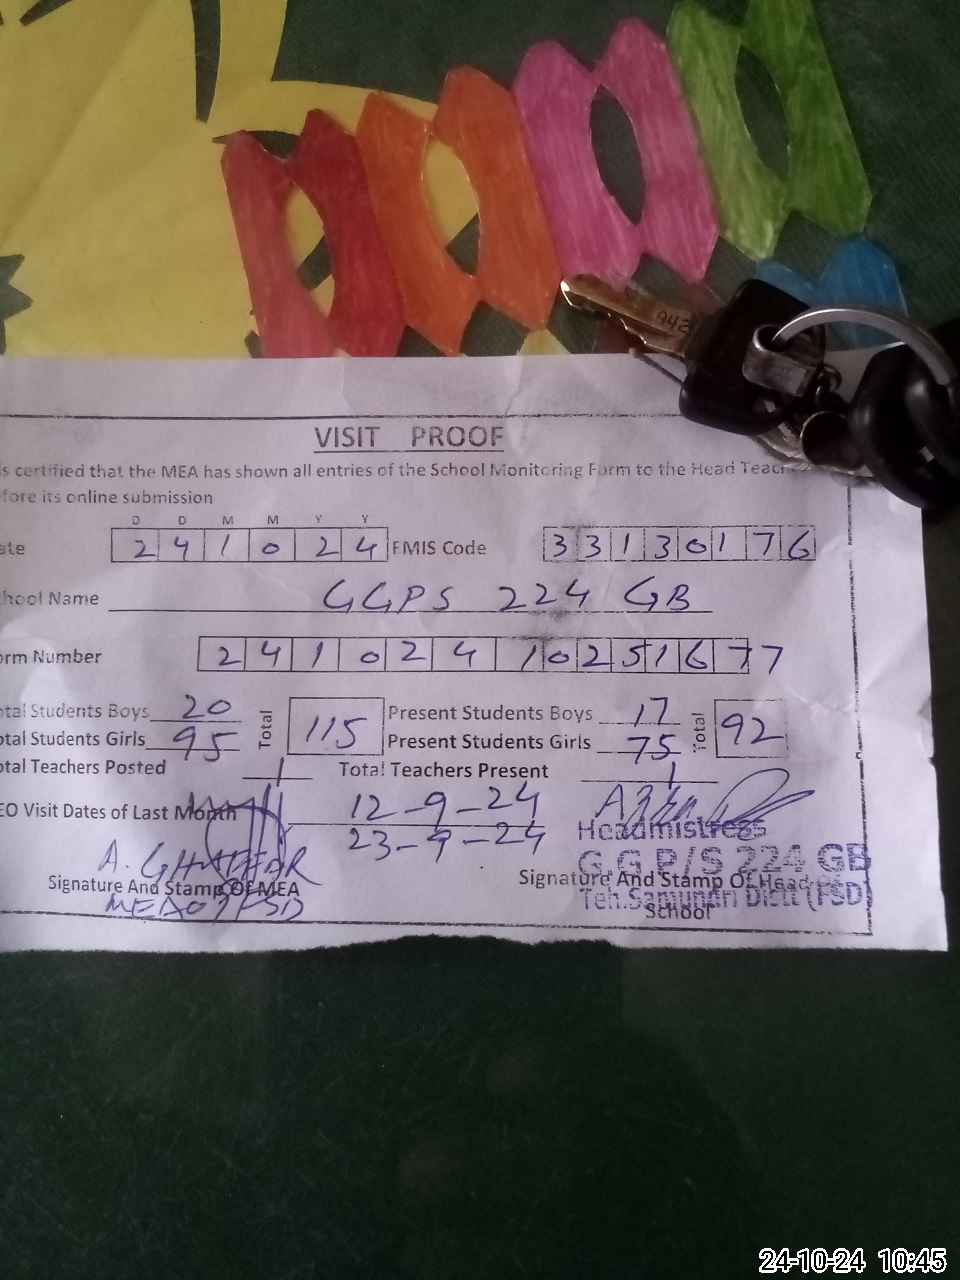 942
VISIT PROOF
s certified that the MEA has shown all entries of the School Monitoring Form to the Head Teach
fore its online submission
D D M M Y Y
ate 2 4 1 0 2 4 EMIS Code 3 3 1 3 0 1 7 6
hool Name GGPS 224 GB
orm Number 2 4 1 0 2 4 1 0 2 5 1 6 7 7
otal Students Boys 20 Total 115 Present Students Boys 17 Total 92
otal Students Girls 95 Present Students Girls 75
otal Teachers Posted 1 Total Teachers Present 1
EO Visit Dates of Last Month 12-9-24
23-9-24
Headmistress
A. GHAFFAR G.G P/S 224 GB
Signature And Stamp Of MEA Signature And Stamp Of Head
Teh.Samundri Distt (FSD)
School
24-10-24 10:45